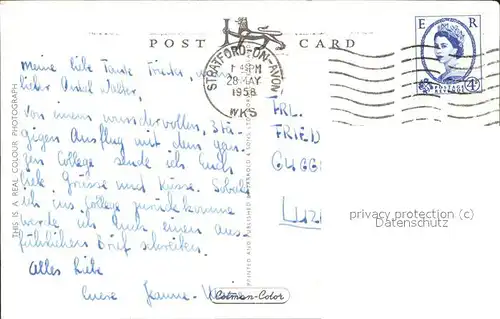 POST CARD
E R
STRATFORD-ON-AVON
1 45PM
28 MAY
1958
WKS
POSTAGE REVENUE
4D
Meine liebe Tante Frieda,
lieber Onkel Walter,
Von einem wundervollen, 3 tä-
gigen Ausflug mit dem gan-
zen College sende ich Euch
liebe Grüsse und Küsse. Sobald
ich ins College zurückkomme
werde ich Euch einen aus-
führlichen Brief schreiben.
Alles Liebe
Euere Jeanne-
FRL.
FRIED
GUGG
LUZ
privacy protection (c)
Datenschutz
THIS IS A REAL COLOUR PHOTOGRAPH
PRINTED AND PUBLISHED BY JARROLD & SONS LTD.
Cotman-Color